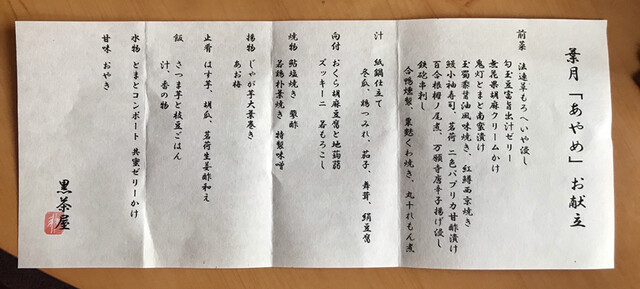 葉月「あやめ」お献立
前菜 法連草もろへいや浸し
勾玉豆富旨出汁ゼリー
無花果胡麻クリームかけ
鬼灯とまと南蛮漬け
玉蜀黍醤油風味焼き、紅鱒西京焼き
鰻小袖寿司、茗荷 二色パプリカ甘酢漬け
百合根栂ノ尾煮、万願寺唐辛子揚げ浸し
鉄砲串利し
合鴨燻製、粟麩くわ焼き、丸十れもん煮
汁 紙鍋仕立て
冬瓜、鶏つみれ、茄子、舞茸、絹豆腐
向付 おくら胡麻豆腐と地蒟蒻
ズッキーニ 若もろこし
焼物 鮎塩焼き 蓼酢
若鶏朴葉焼き 特製味噌
揚物 じゃが芋大葉巻き
あお梅
止肴 はす芋、胡瓜、茗荷生姜酢和え
飯 さつま芋と枝豆ごはん
汁、香の物
水物 とまとコンポート 共蜜ゼリーかけ
甘味 おやき
黒茶屋